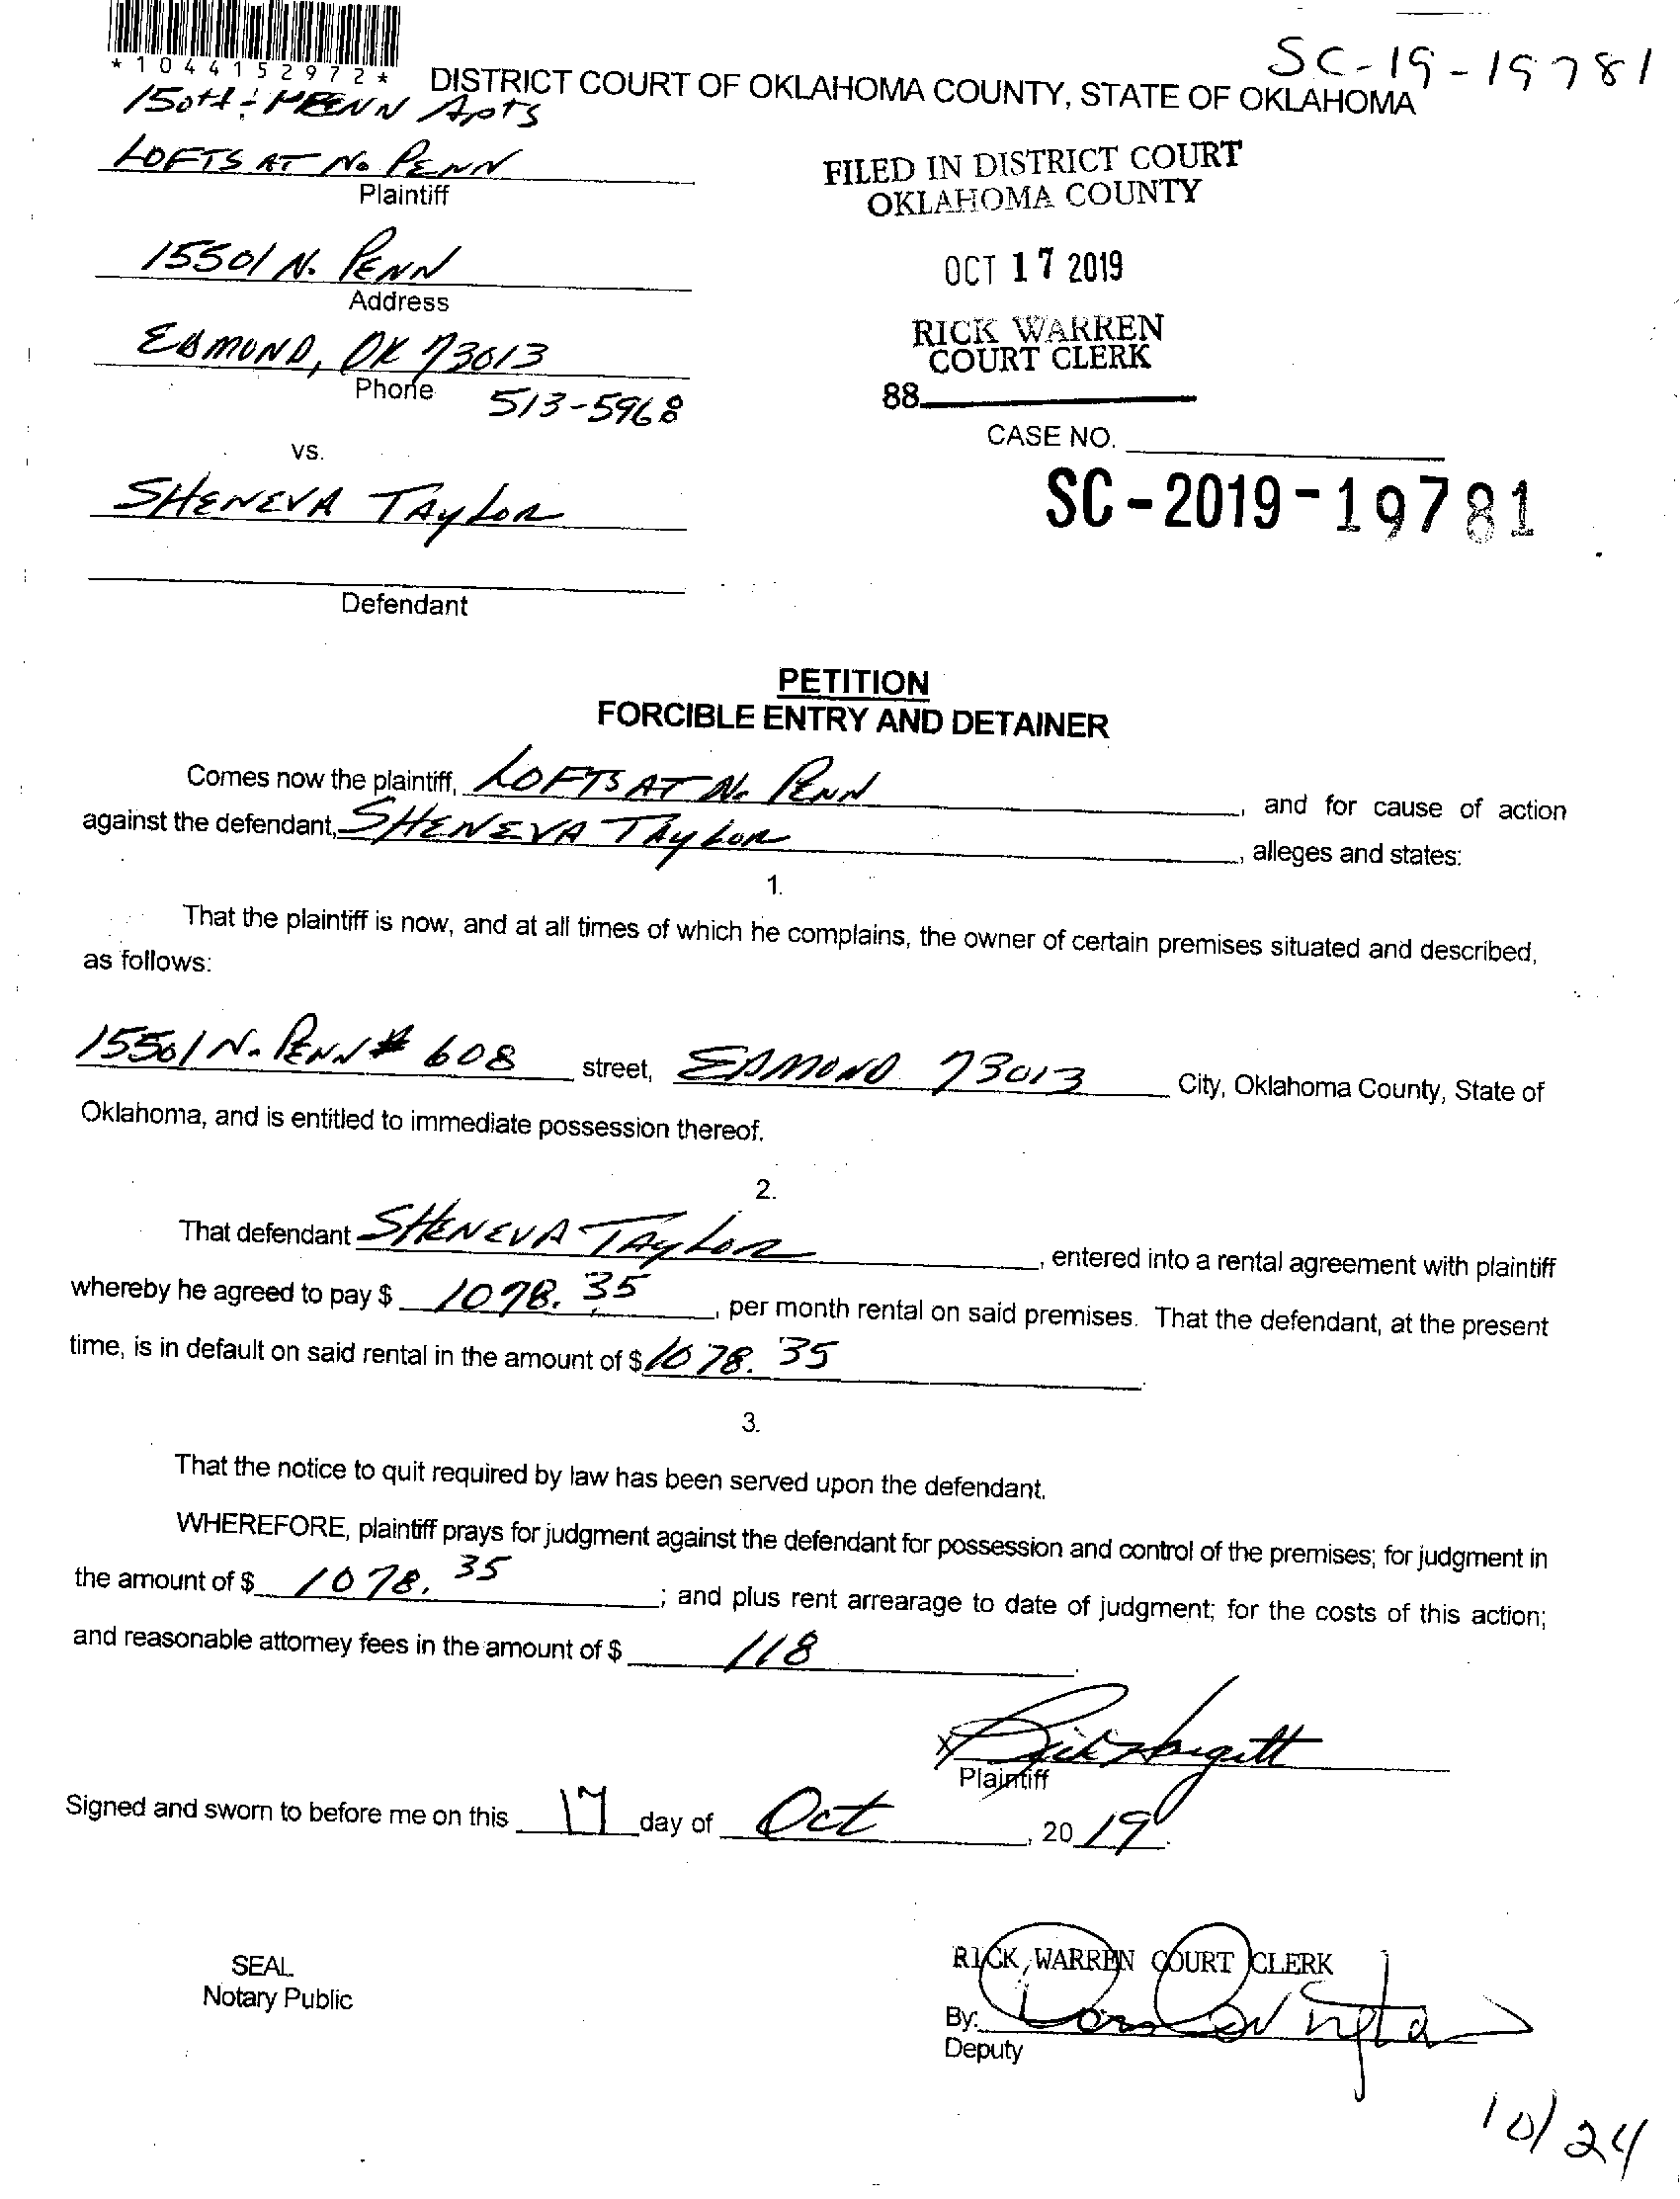 SC-19-19781
*1044152972*
DISTRICT COURT OF OKLAHOMA COUNTY, STATE OF OKLAHOMA
150th - PENN Apts
LOFTS AT No PENN
Plaintiff
FILED IN DISTRICT COURT
OKLAHOMA COUNTY
15501 N. PENN
Address
OCT 17 2019
EDMOND, OK 73013
Phone 513-5968
RICK WARREN
COURT CLERK
88
CASE NO.
vs.
SC-2019-19781
SHENEVA TAYLOR
Defendant
PETITION
FORCIBLE ENTRY AND DETAINER
Comes now the plaintiff, LOFTS AT No PENN, and for cause of action
against the defendant, SHENEVA TAYLOR, alleges and states:
1.
That the plaintiff is now, and at all times of which he complains, the owner of certain premises situated and described,
as follows:
15501 N. PENN # 608 street, EDMOND 73013 City, Oklahoma County, State of
Oklahoma, and is entitled to immediate possession thereof.
2.
That defendant SHENEVA TAYLOR, entered into a rental agreement with plaintiff
whereby he agreed to pay $ 1078.35, per month rental on said premises. That the defendant, at the present
time, is in default on said rental in the amount of $ 1078.35.
3.
That the notice to quit required by law has been served upon the defendant.
WHEREFORE, plaintiff prays for judgment against the defendant for possession and control of the premises; for judgment in
the amount of $ 1078.35; and plus rent arrearage to date of judgment; for the costs of this action;
and reasonable attorney fees in the amount of $ 118.
X
Plaintiff
Signed and sworn to before me on this 17 day of Oct, 2019.
SEAL
Notary Public
RICK WARREN COURT CLERK
By:
Deputy
10/24